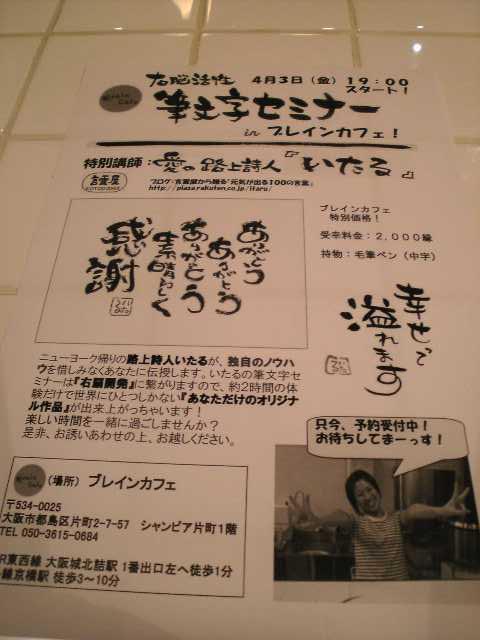 右脳活性 4月3日（金）19：00
スタート！
Brain Cafe
筆文字セミナー
in ブレインカフェ！
特別講師：愛の路上詩人『いたる』
言霊屋
KOTODAMAYA
ブログ・言霊屋から贈る"元気が出る100の言葉"
http://plaza.rakuten.co.jp/itaru/
ありがとう
ありがとう
ありがとう
素晴らしく
感謝
ブレインカフェ
特別価格！
受幸料金：2,000縁
持物：毛筆ペン（中字）
幸せで
溢れます
ニューヨーク帰りの路上詩人いたるが、独自のノウハ
ウを惜しみなくあなたに伝授します。いたるの筆文字セ
ミナーは『右脳開発』に繋がりますので、約2時間の体
験だけで世界にひとつしかない『あなただけのオリジナ
ル作品』が出来上がっちゃいます！
楽しい時間を一緒に過ごしませんか？
是非、お誘いあわせの上、お越しください。
只今、予約受付中！
お待ちしてまーっす！
Brain Cafe （場所） ブレインカフェ
〒534-0025
大阪市都島区片町2-7-57 シャンピア片町1階
TEL 050-3615-0684
R東西線 大阪城北詰駅 1番出口左へ徒歩1分
線京橋駅 徒歩3～10分